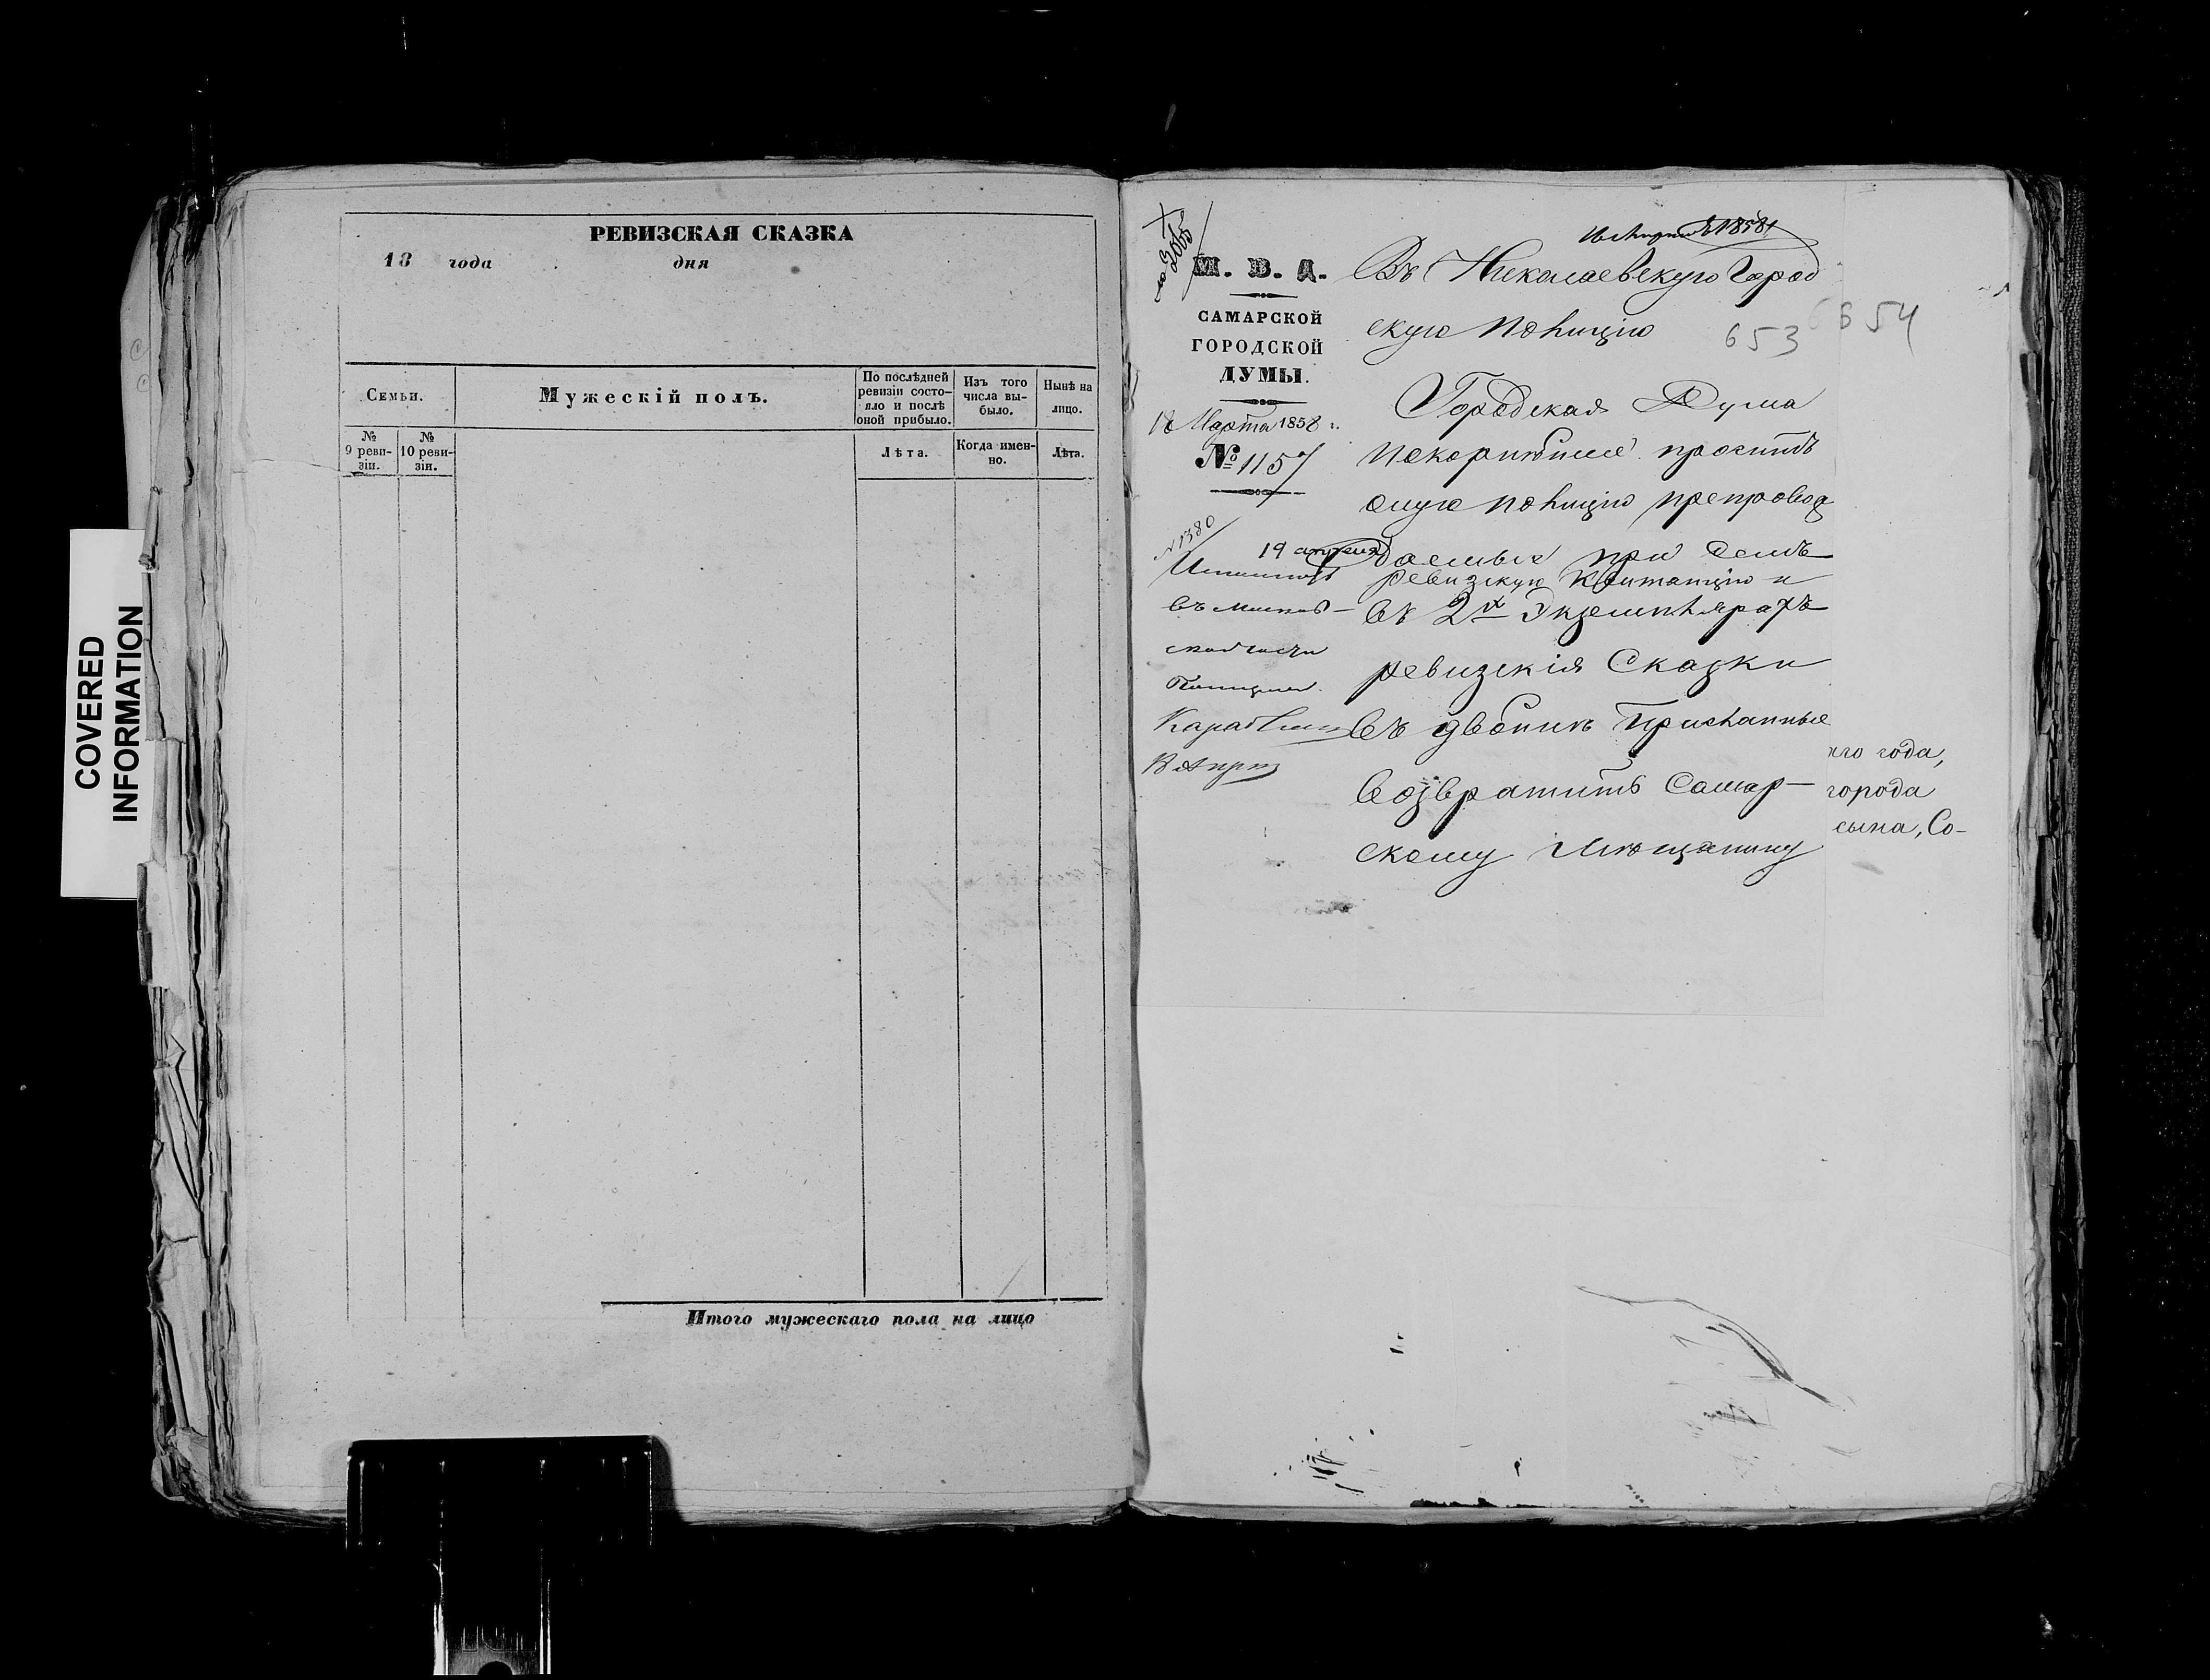 COVERED
INFORMATION
РЕВИЗСКАЯ СКАЗКА
18 года дня
Семьи.
Мужескій полъ.
По послѣдней ревизіи состояло и послѣ оной прибыло.
Изъ того числа выбыло.
Нынѣ на лицо.
№ 9 ревизіи.
№ 10 ревизіи.
Лѣта.
Когда именно.
Лѣта.
Итого мужескаго пола на лицо
М. В. Д.
САМАРСКОЙ
ГОРОДСКОЙ
ДУМЫ.
18 Марта 1858 г.
№ 1157
№ 1380
19 апреля
Въ Николаевскую Город
скую Полицію
653
654
Городская Дума
покорнѣйше проситъ
оную Полицію препровож
даемыя при семъ
ревизскую Квитанцію и
въ 2х Экземплярахъ
ревизскія Сказки
въ двойнѣ Присланные
возвратить Самар-
скому Мѣщанину
го года,
города
сына, Со-